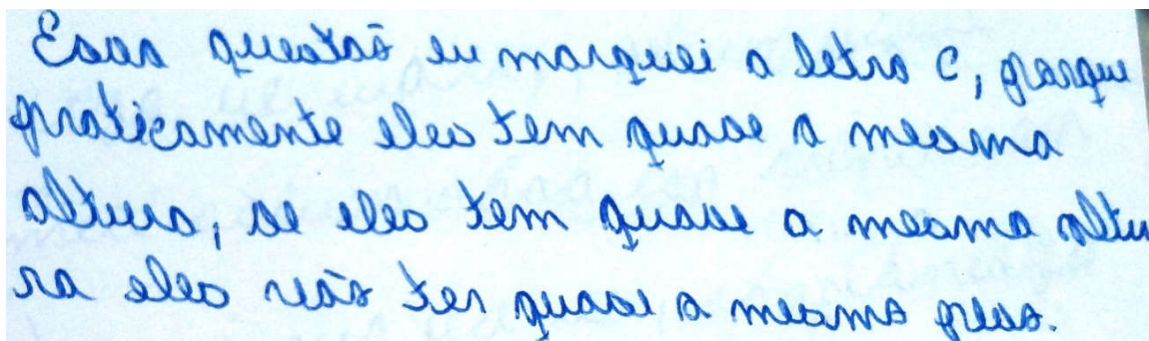 Essa questão eu marquei a letra c, porque
praticamente eles tem quase a mesma
altura, se eles tem quase a mesma altu
ra eles vão ter quase a mesma peso.